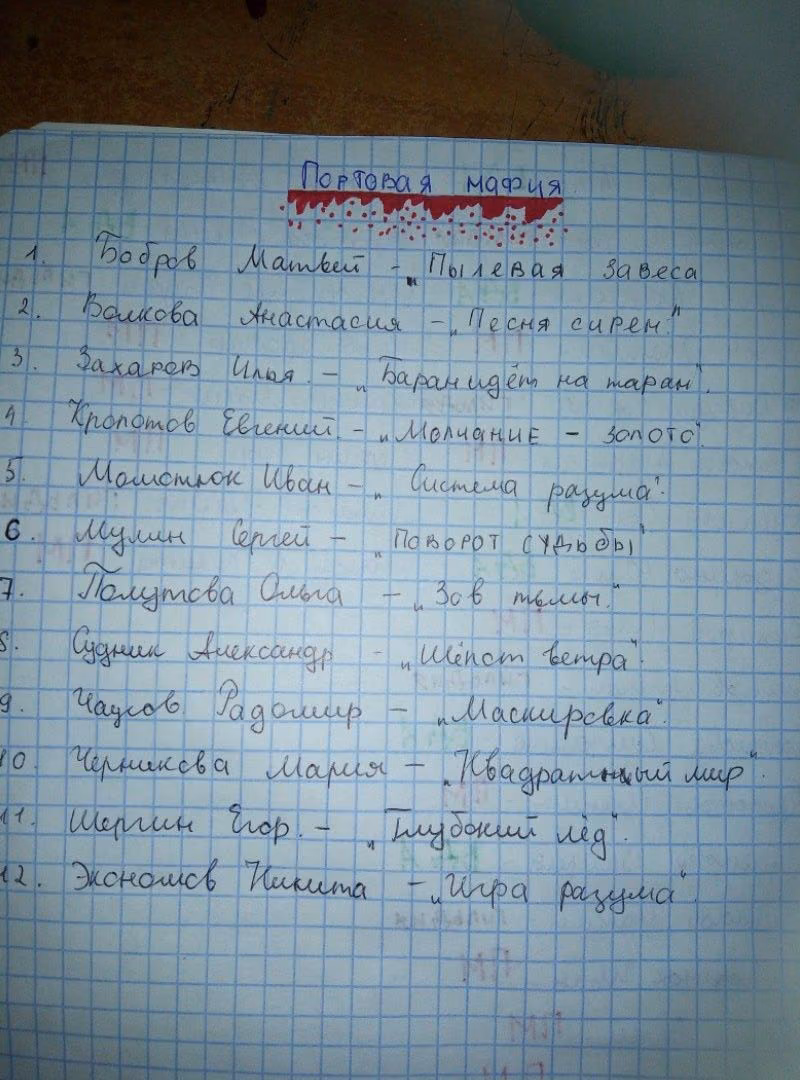 Портовая мафия
1. Бобров Матвей - „Пылевая завеса
2. Волкова Анастасия - „Песня сирен."
3. Захаров Илья. - „Баран идёт на таран".
4 Кропотов Евгений. - „Молчание - золото".
5. Момотюк Иван - „Система разума".
6. Мулин Сергей - „Поворот судьбы"
7. Полутова Ольга - „Зов тьмы."
8. Судник Александр - „Шёпот ветра".
9. Чаусов Радомир - „Маскировка".
10. Черникова Мария - „Квадратный мир".
11. Шергин Егор. - „Глубокий лёд".
12. Экономов Никита - „Игра разума".